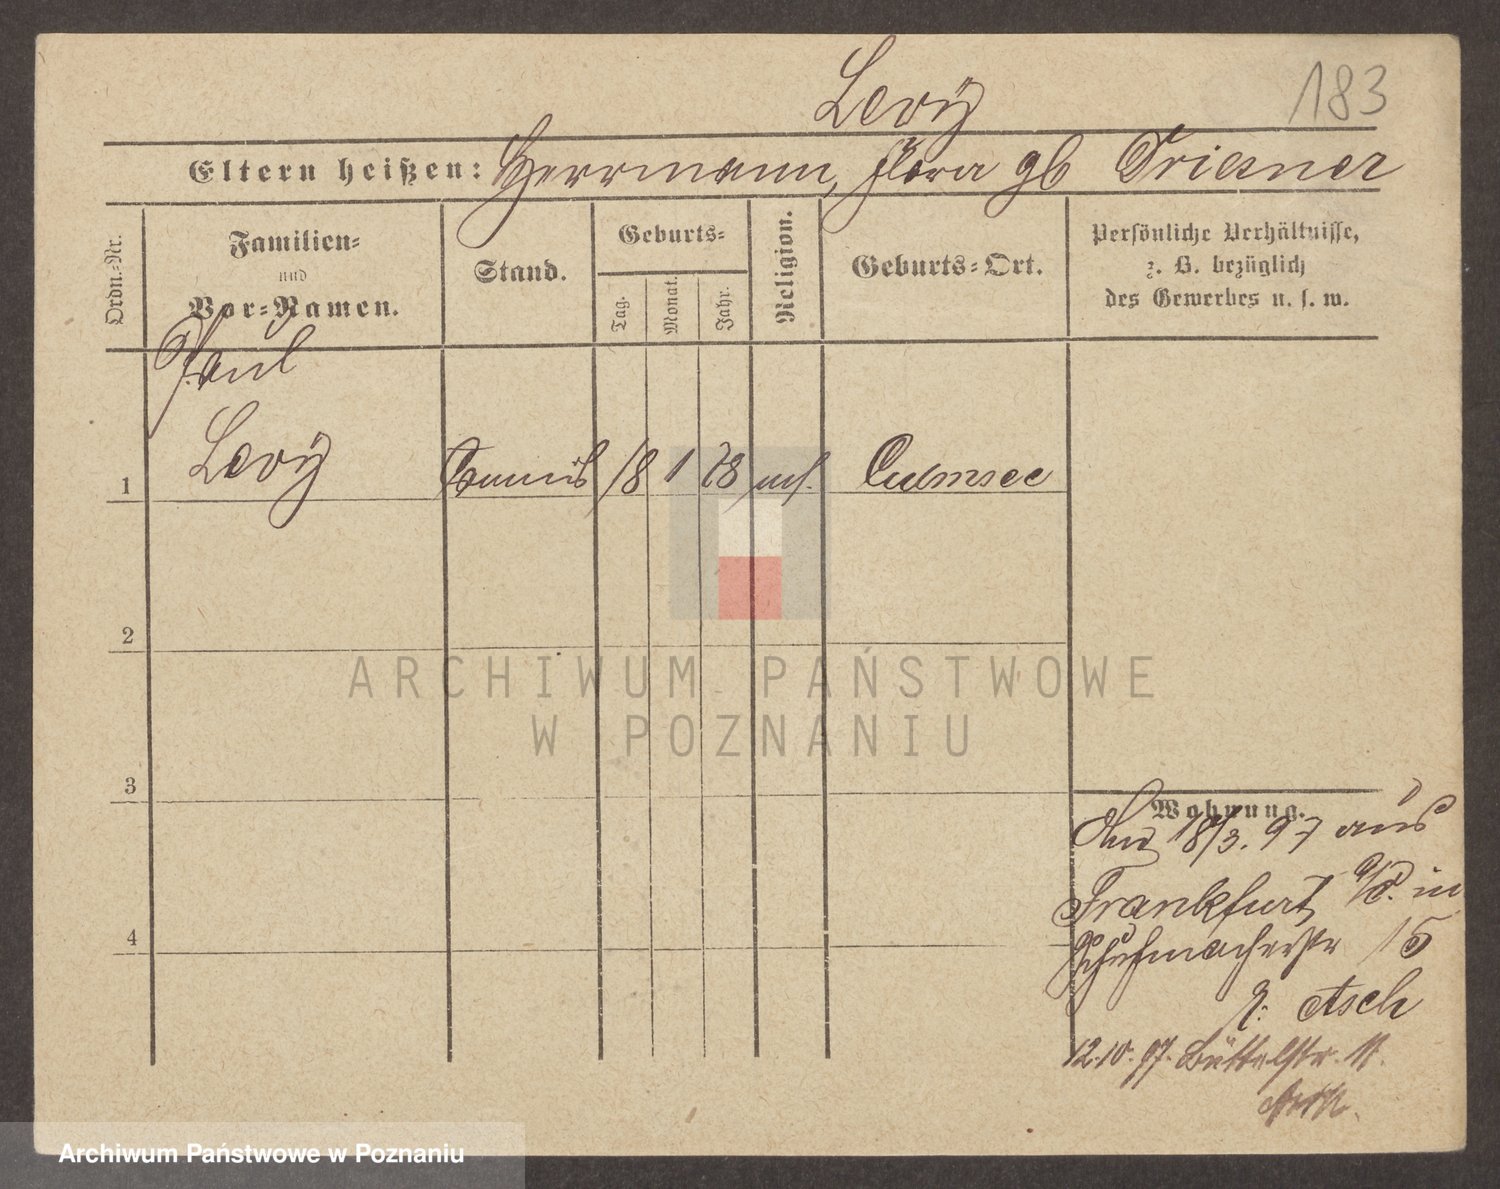 183
Levy
Eltern heißen: Herrmann, Flora gb Triesner
Ordn.-Nr.
Familien-
und
Vor-Namen.
Stand.
Geburts-
Tag.
Monat.
Jahr.
Religion.
Geburts-Ort.
Persönliche Verhältnisse,
z. B. bezüglich
des Gewerbes u. s. w.
Paul
Levy
1 Commis 18 1 78 Culmsee
2
3
4
Wohnung.
18/3. 97 aus
Frankfurt a/O. in
Schuhmacherstr 15
b. Asch
12.10.97. Büttelstr. 11.
ARCHIWUM PAŃSTWOWE
W POZNANIU
Archiwum Państwowe w Poznaniu